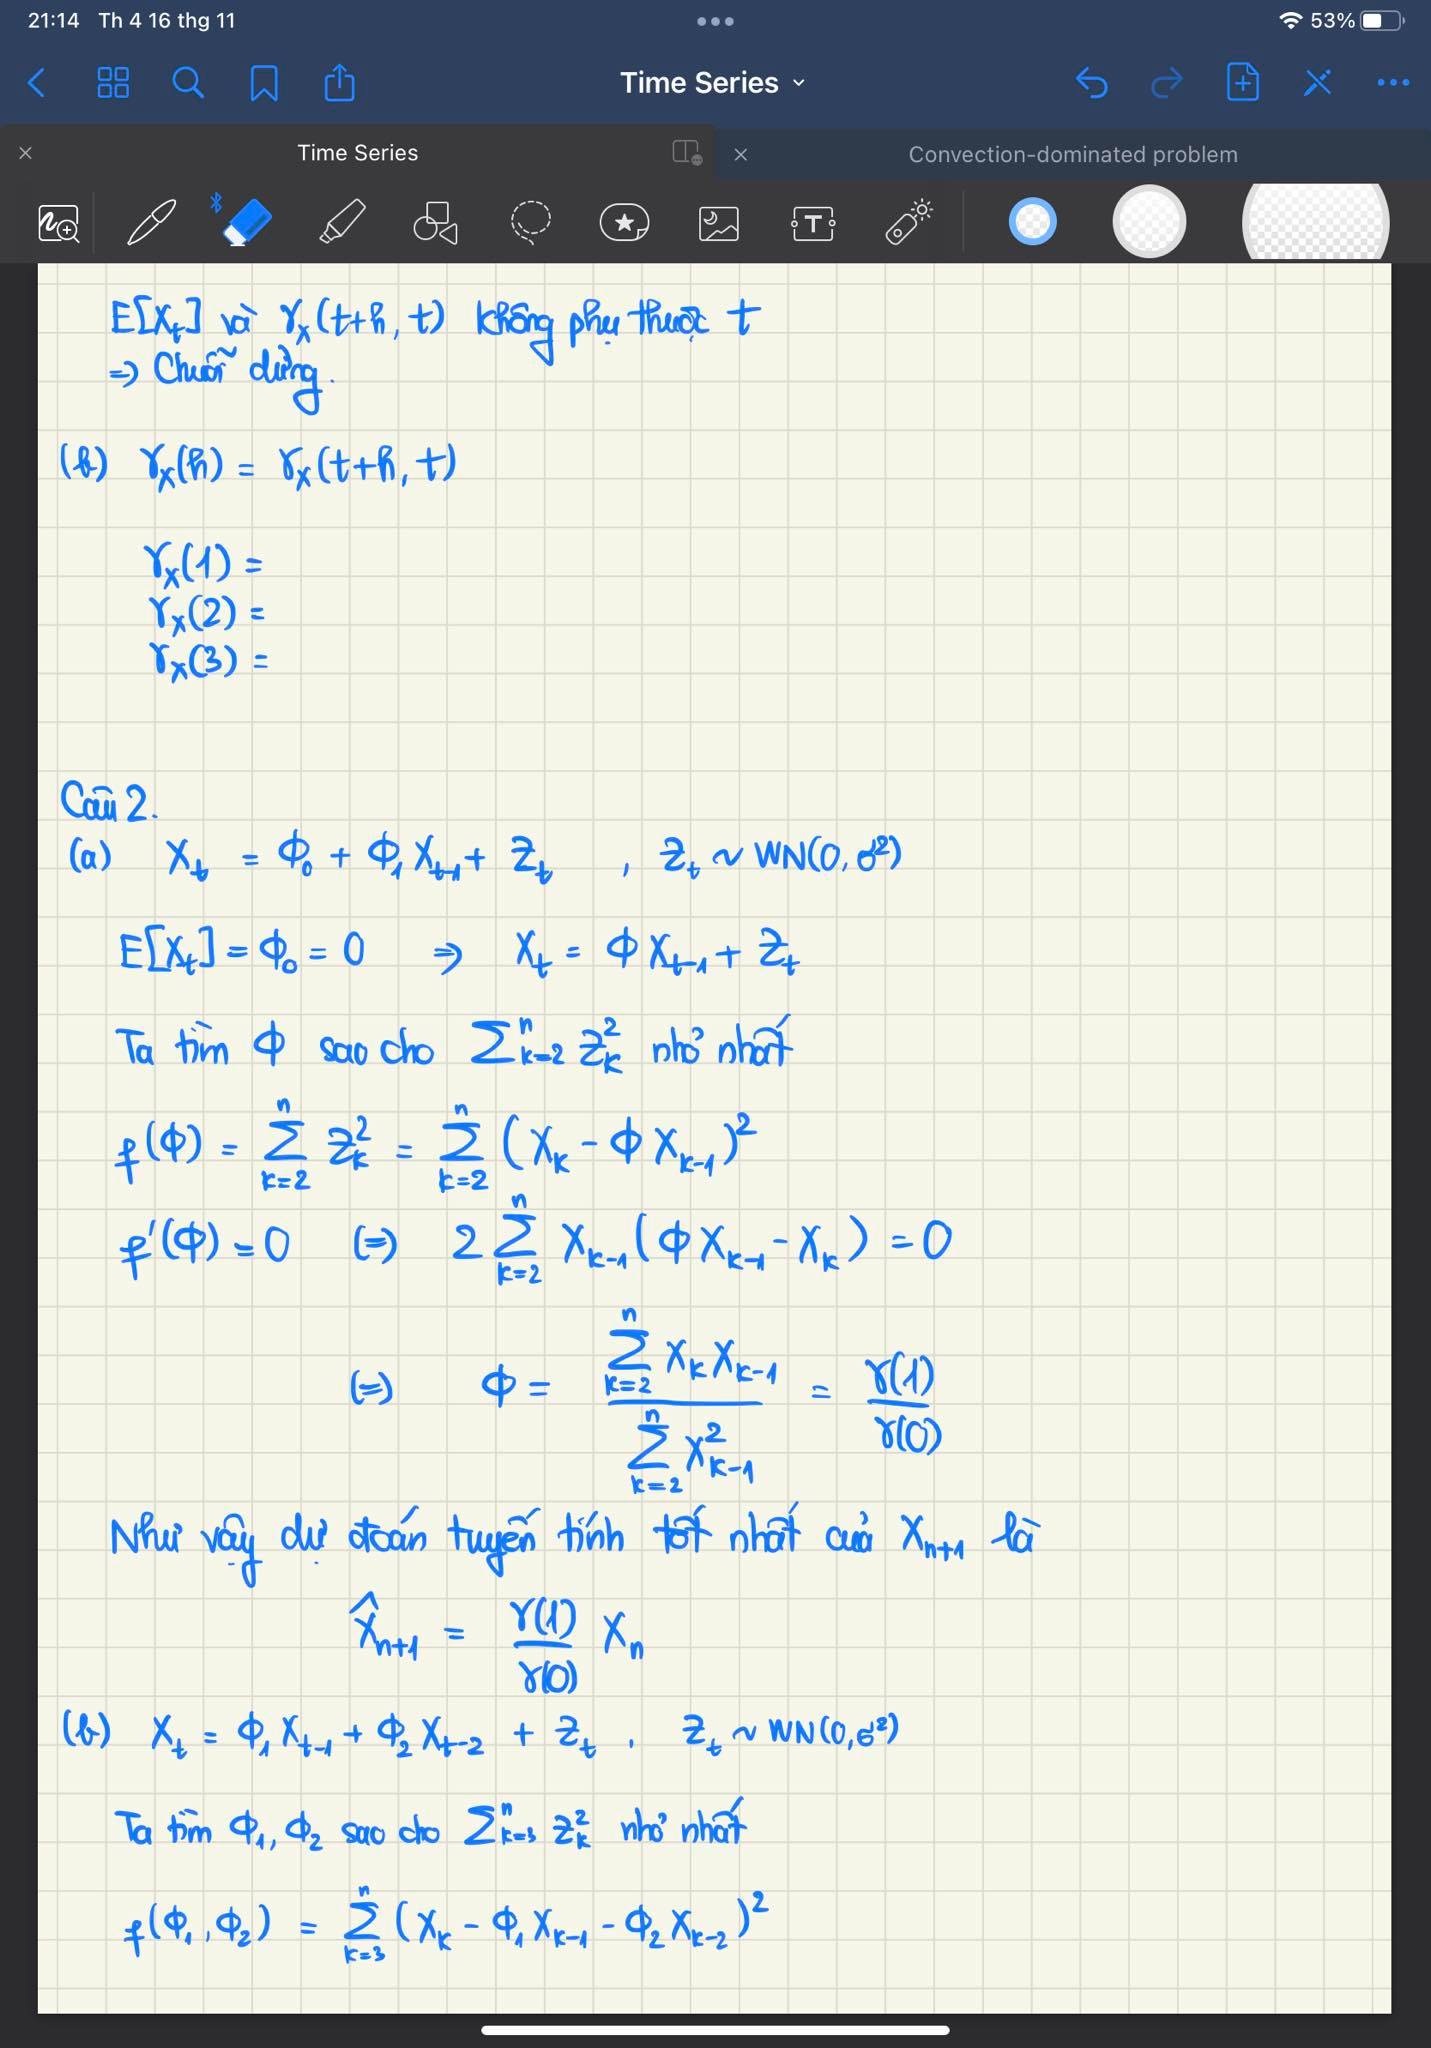 21:14 Th 4 16 thg 11 53%
Time Series
Time Series
Convection-dominated problem
T
E[X_t] và γ_X(t+h, t) không phụ thuộc t
⇒ Chuỗi dừng.
(b) γ_X(h) = γ_X(t+h, t)
γ_X(1) =
γ_X(2) =
γ_X(3) =
Câu 2.
(a) X_t = ϕ_0 + ϕ_1 X_{t-1} + Z_t , Z_t ~ WN(0, σ²)
E[X_t] = ϕ_0 = 0 ⇒ X_t = ϕ X_{t-1} + Z_t
Ta tìm ϕ sao cho ∑_{k=2}^n Z_k^2 nhỏ nhất
f(ϕ) = ∑_{k=2}^n Z_k^2 = ∑_{k=2}^n (X_k - ϕ X_{k-1})^2
f'(ϕ) = 0 (=) 2 ∑_{k=2}^n X_{k-1} (ϕ X_{k-1} - X_k) = 0
(=) ϕ = \frac{∑_{k=2}^n X_k X_{k-1}}{∑_{k=2}^n X_{k-1}^2} = \frac{γ(1)}{γ(0)}
Như vậy dự đoán tuyến tính tốt nhất của X_{n+1} là
\hat{X}_{n+1} = \frac{γ(1)}{γ(0)} X_n
(b) X_t = ϕ_1 X_{t-1} + ϕ_2 X_{t-2} + Z_t , Z_t ~ WN(0, σ²)
Ta tìm ϕ_1, ϕ_2 sao cho ∑_{k=3}^n Z_k^2 nhỏ nhất
f(ϕ_1, ϕ_2) = ∑_{k=3}^n (X_k - ϕ_1 X_{k-1} - ϕ_2 X_{k-2})^2